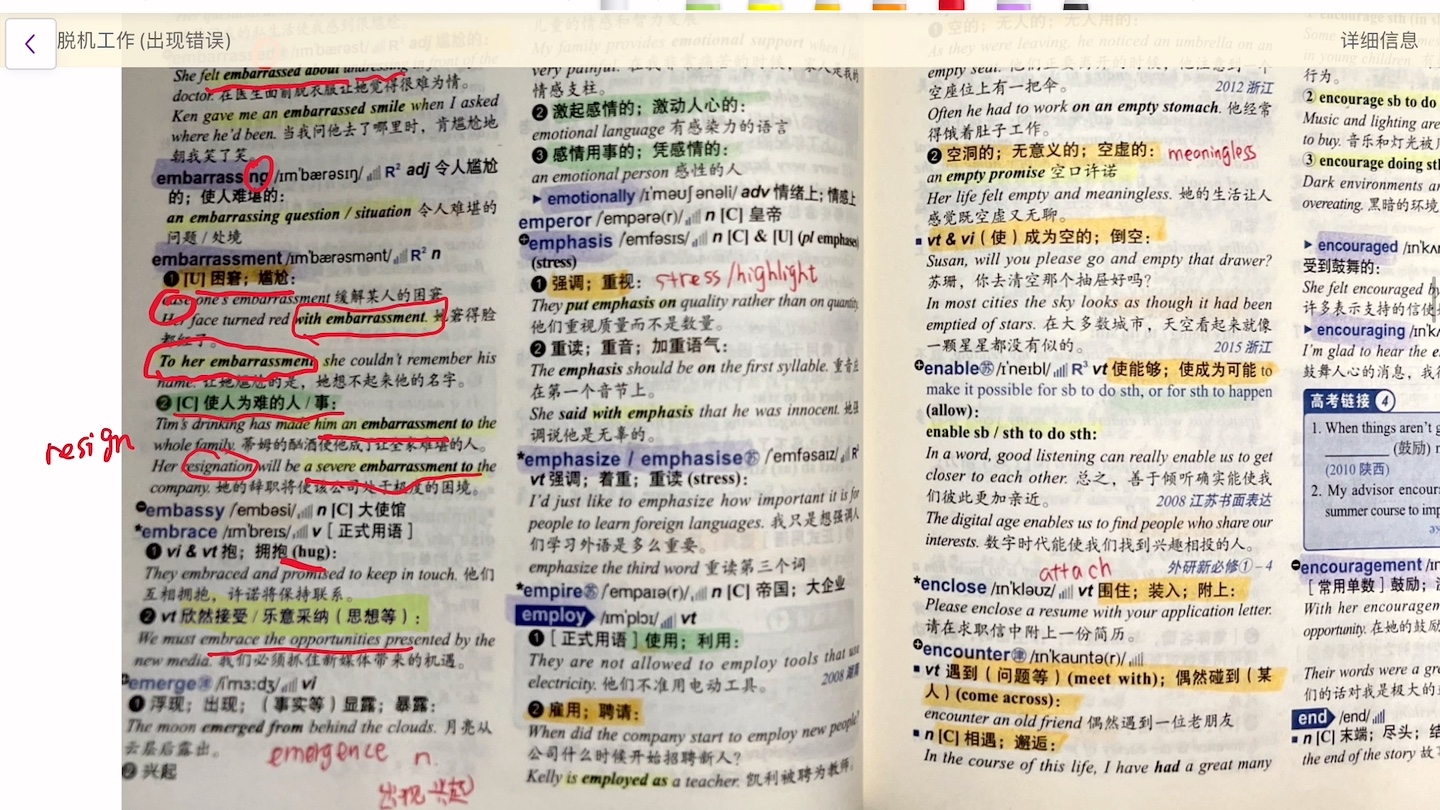 脱机工作 (出现错误)
详细信息
She felt embarrassed about undressing
doctor. 在医生面前脱衣服让她觉得很难为情。
Ken gave me an embarrassed smile when I asked
where he'd been. 当我问他去了哪里时，肯尴尬地
朝我笑了笑。
embarrassing /ɪmˈbærəsɪŋ/ R² adj 令人尴尬
的；使人难堪的：
an embarrassing question / situation 令人难堪的
问题 / 处境
embarrassment /ɪmˈbærəsmənt/ R² n
❶ [U] 困窘；尴尬：
one's embarrassment 缓解某人的困窘
Her face turned red with embarrassment. 她窘得脸
都红了。
To her embarrassment, she couldn't remember his
name. 让她尴尬的是，她想不起来他的名字。
❷ [C] 使人为难的人 / 事：
Tim's drinking has made him an embarrassment to the
whole family. 蒂姆的酗酒使他成了让全家难堪的人。
resign
Her resignation will be a severe embarrassment to the
company. 她的辞职将使该公司处于极度的困境。
embassy /ˈembəsi/ n [C] 大使馆
*embrace /ɪmˈbreɪs/ v [ 正式用语 ]
❶ vi & vt 抱；拥抱 (hug):
They embraced and promised to keep in touch. 他们
互相拥抱，许诺将保持联系。
❷ vt 欣然接受 / 乐意采纳（思想等）:
We must embrace the opportunities presented by the
new media. 我们必须抓住新媒体带来的机遇。
emerge /ɪˈmɜːdʒ/ vi
❶ 浮现；出现；（事实等）显露；暴露：
The moon emerged from behind the clouds. 月亮从
云层后露出。
emergence n.
❷ 兴起
出现 兴起
My family provides emotional support when
very painful.
情感支柱。
❷ 激起感情的；激动人心的：
emotional language 有感染力的语言
❸ 感情用事的；凭感情的：
an emotional person 感性的人
▸ emotionally /ɪˈməʊʃənəli/ adv 情绪上；情感上
emperor /ˈempərə(r)/ n [C] 皇帝
emphasis /ˈemfəsɪs/ n [C] & [U] (pl emphases)
(stress)
❶ 强调；重视： stress/highlight
They put emphasis on quality rather than on quantity.
他们重视质量而不是数量。
❷ 重读；重音；加重语气：
The emphasis should be on the first syllable. 重音应
在第一个音节上。
She said with emphasis that he was innocent. 她强
调说他是无辜的。
*emphasize / emphasise ㊄ /ˈemfəsaɪz/ R
vt 强调；着重；重读 (stress):
I'd just like to emphasize how important it is for
people to learn foreign languages. 我只是想强调人
们学习外语是多么重要。
emphasize the third word 重读第三个词
*empire /ˈempaɪə(r)/ n [C] 帝国；大企业
employ /ɪmˈplɔɪ/ vt
❶ [ 正式用语 ] 使用；利用：
They are not allowed to employ tools that use
electricity. 他们不准用电动工具。 2008 湖南
❷ 雇用；聘请：
When did the company start to employ new people?
公司什么时候开始招聘新人？
Kelly is employed as a teacher. 凯利被聘为教师。
① 空的；无人的；无人用的：
As they were leaving, he noticed an umbrella on an
empty seat.
空座位上有一把伞。 2012 浙江
Often he had to work on an empty stomach. 他经常
得饿着肚子工作。
❷ 空洞的；无意义的；空虚的： meaningless
an empty promise 空口许诺
Her life felt empty and meaningless. 她的生活让人
感觉既空虚又无聊。
▪ vt & vi（使）成为空的；倒空：
Susan, will you please go and empty that drawer?
苏珊，你去清空那个抽屉好吗？
In most cities the sky looks as though it had been
emptied of stars. 在大多数城市，天空看起来就像
一颗星星都没有似的。 2015 浙江
enable /ɪˈneɪbl/ R³ vt 使能够；使成为可能 to
make it possible for sb to do sth, or for sth to happen
(allow):
enable sb / sth to do sth:
In a word, good listening can really enable us to get
closer to each other. 总之，善于倾听确实能使我
们彼此更加亲近。 2008 江苏书面表达
The digital age enables us to find people who share our
interests. 数字时代能使我们找到兴趣相投的人。
外研新必修①–4
attach
*enclose /ɪnˈkləʊz/ vt 围住；装入；附上：
Please enclose a resume with your application letter.
请在求职信中附上一份简历。
encounter /ɪnˈkaʊntə(r)/
▪ vt 遇到（问题等）(meet with)；偶然碰到（某
人）(come across):
encounter an old friend 偶然遇到一位老朋友
▪ n [C] 相遇；邂逅：
In the course of this life, I have had a great many
行为。
② encourage sb to do
Music and lighting are
to buy. 音乐和灯光被
③ encourage doing sth
Dark environments an
overeating. 黑暗的环境
▸ encouraged
受到鼓舞的：
She felt encouraged by
许多表示支持的信使
▸ encouraging
I'm glad to hear the e
鼓舞人心的消息，我
高考链接 4
1. When things aren't g
______ (鼓励) m
(2010 陕西)
2. My advisor encour
summer course to imp
encouragement
[ 常用单数 ] 鼓励；
With her encouragem
opportunity. 在她的鼓励
Their words were a gre
们的话对我是极大的
end /end/
▪ n [C] 末端；尽头；结
the end of the story 故